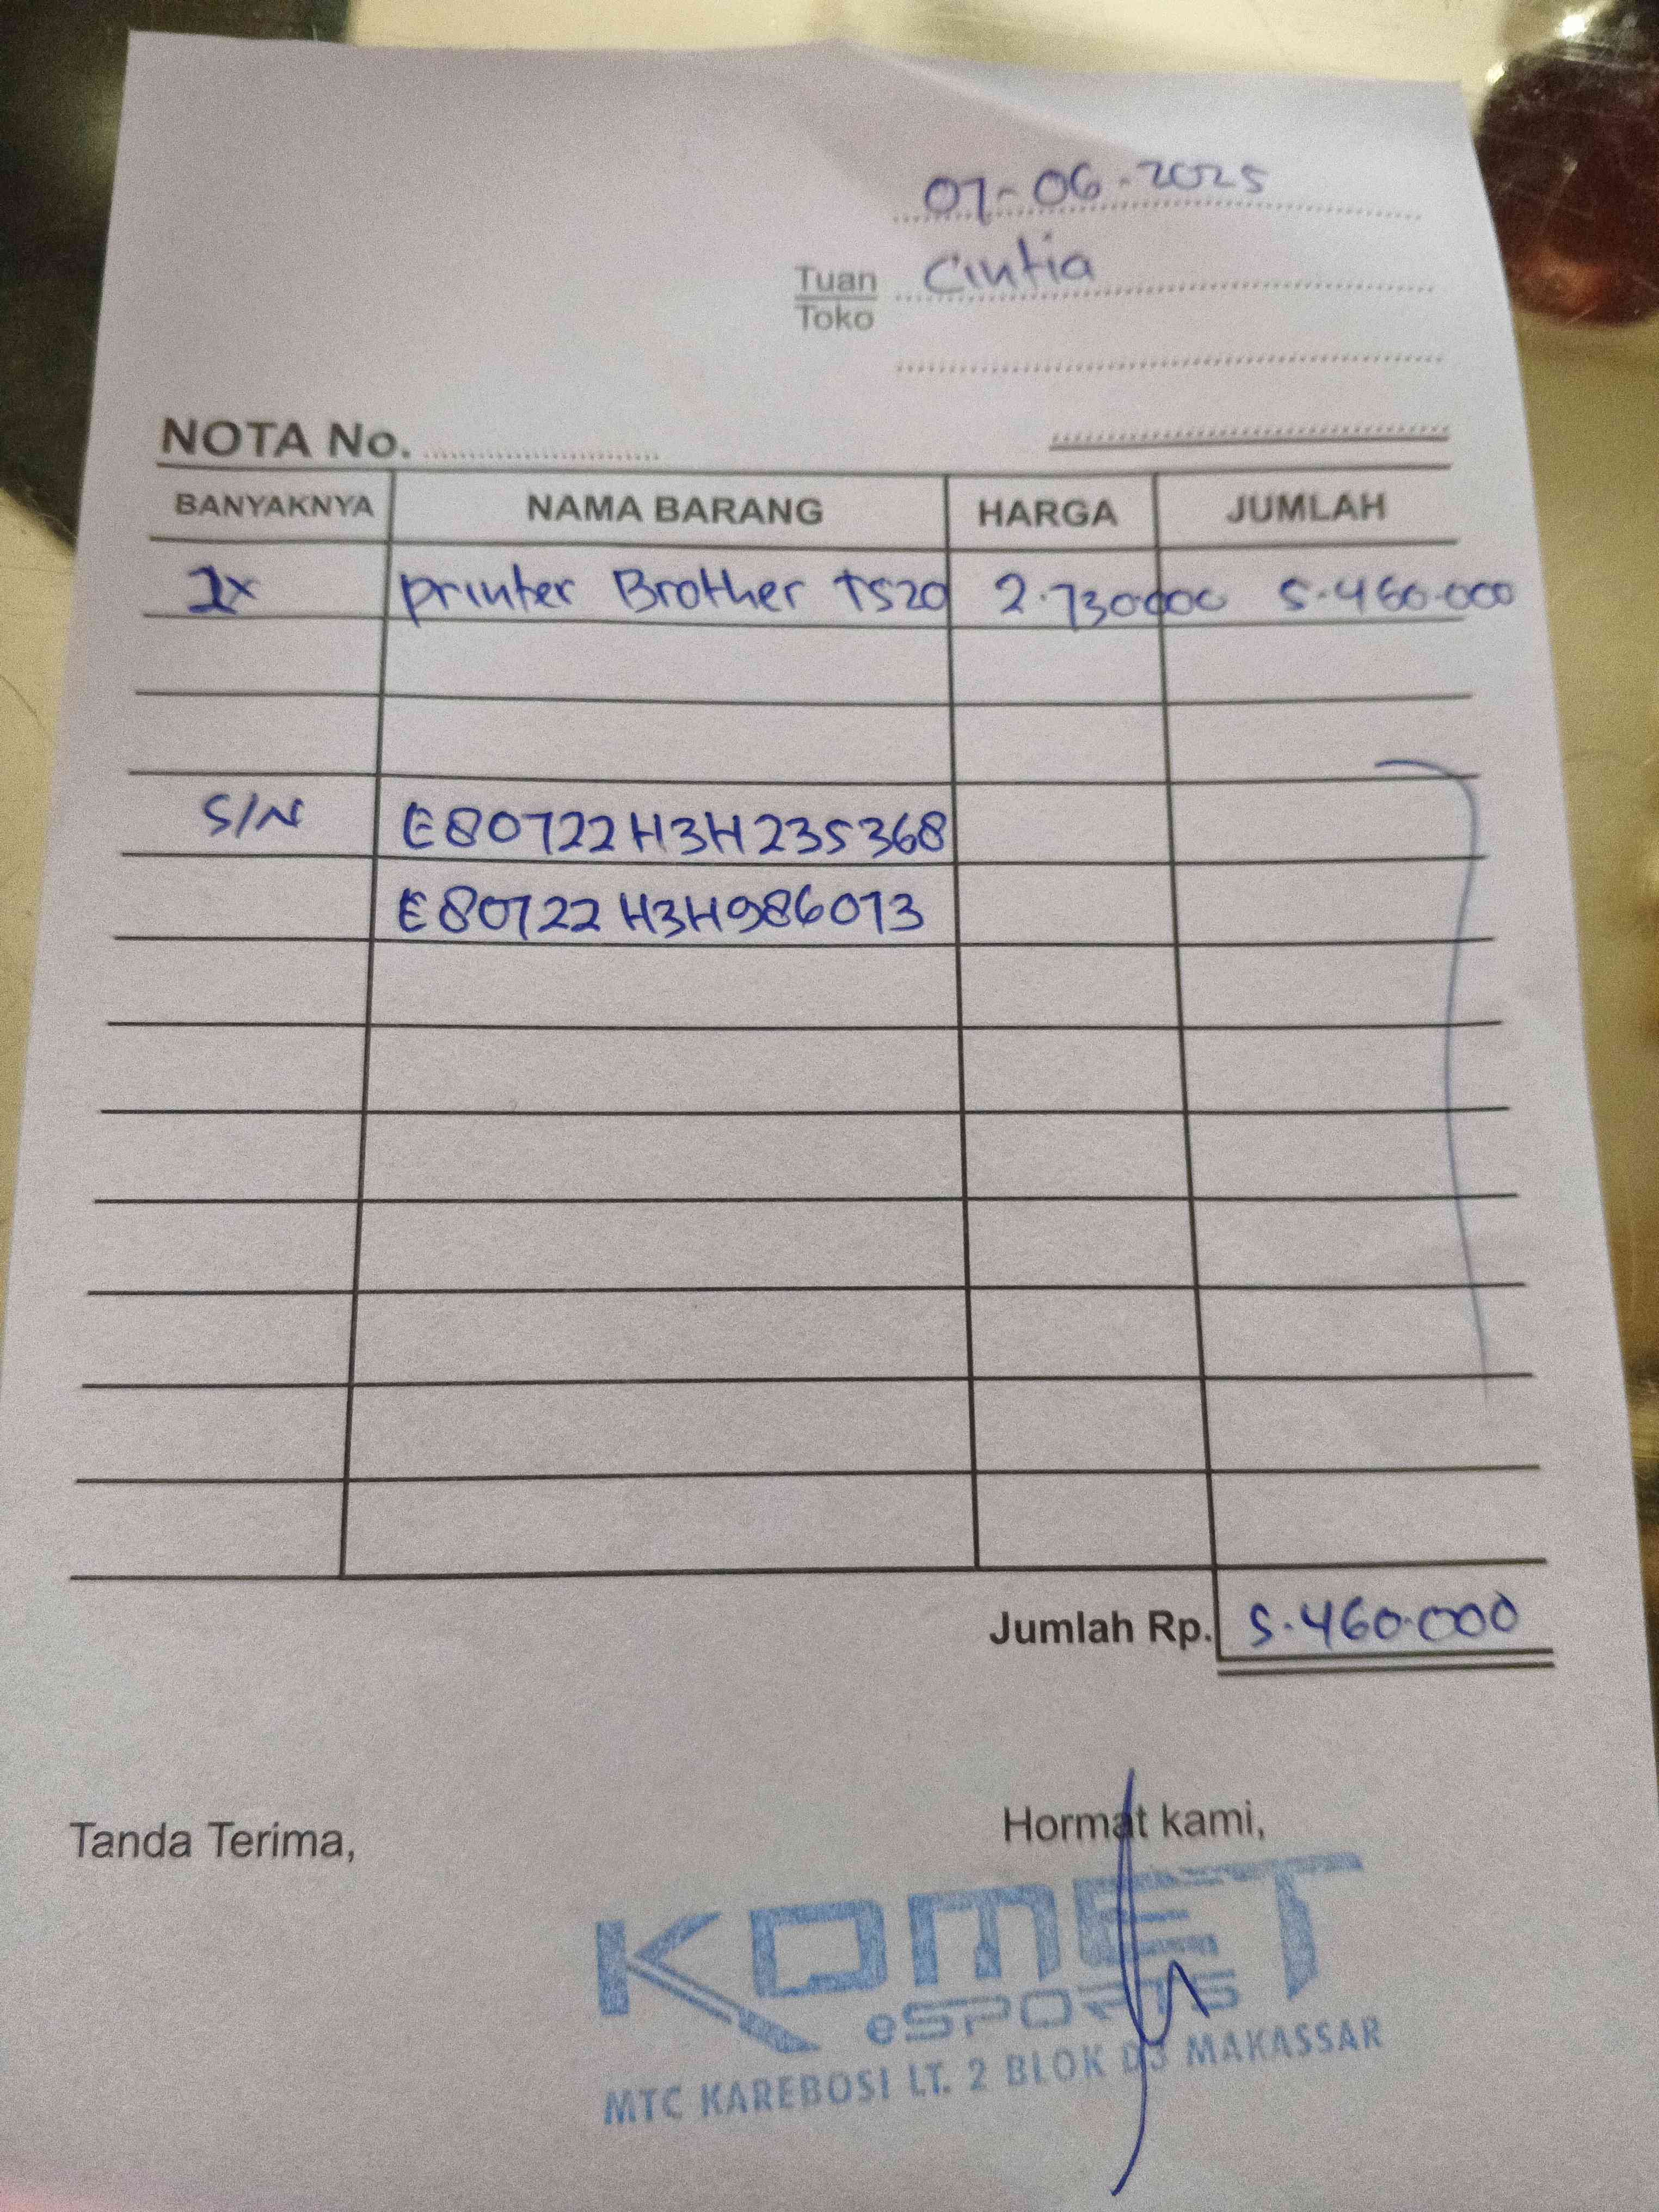 07-06-2025
Tuan Cintia
Toko
NOTA No.
BANYAKNYA NAMA BARANG HARGA JUMLAH
2x printer Brother T520 2.730.000 5.460.000
S/N E80722H3H235368
E80722H3H986073
Jumlah Rp. 5.460.000
Tanda Terima, Hormat kami,
KOMET
eSPORTS
MTC KAREBOSI LT. 2 BLOK D3 MAKASSAR